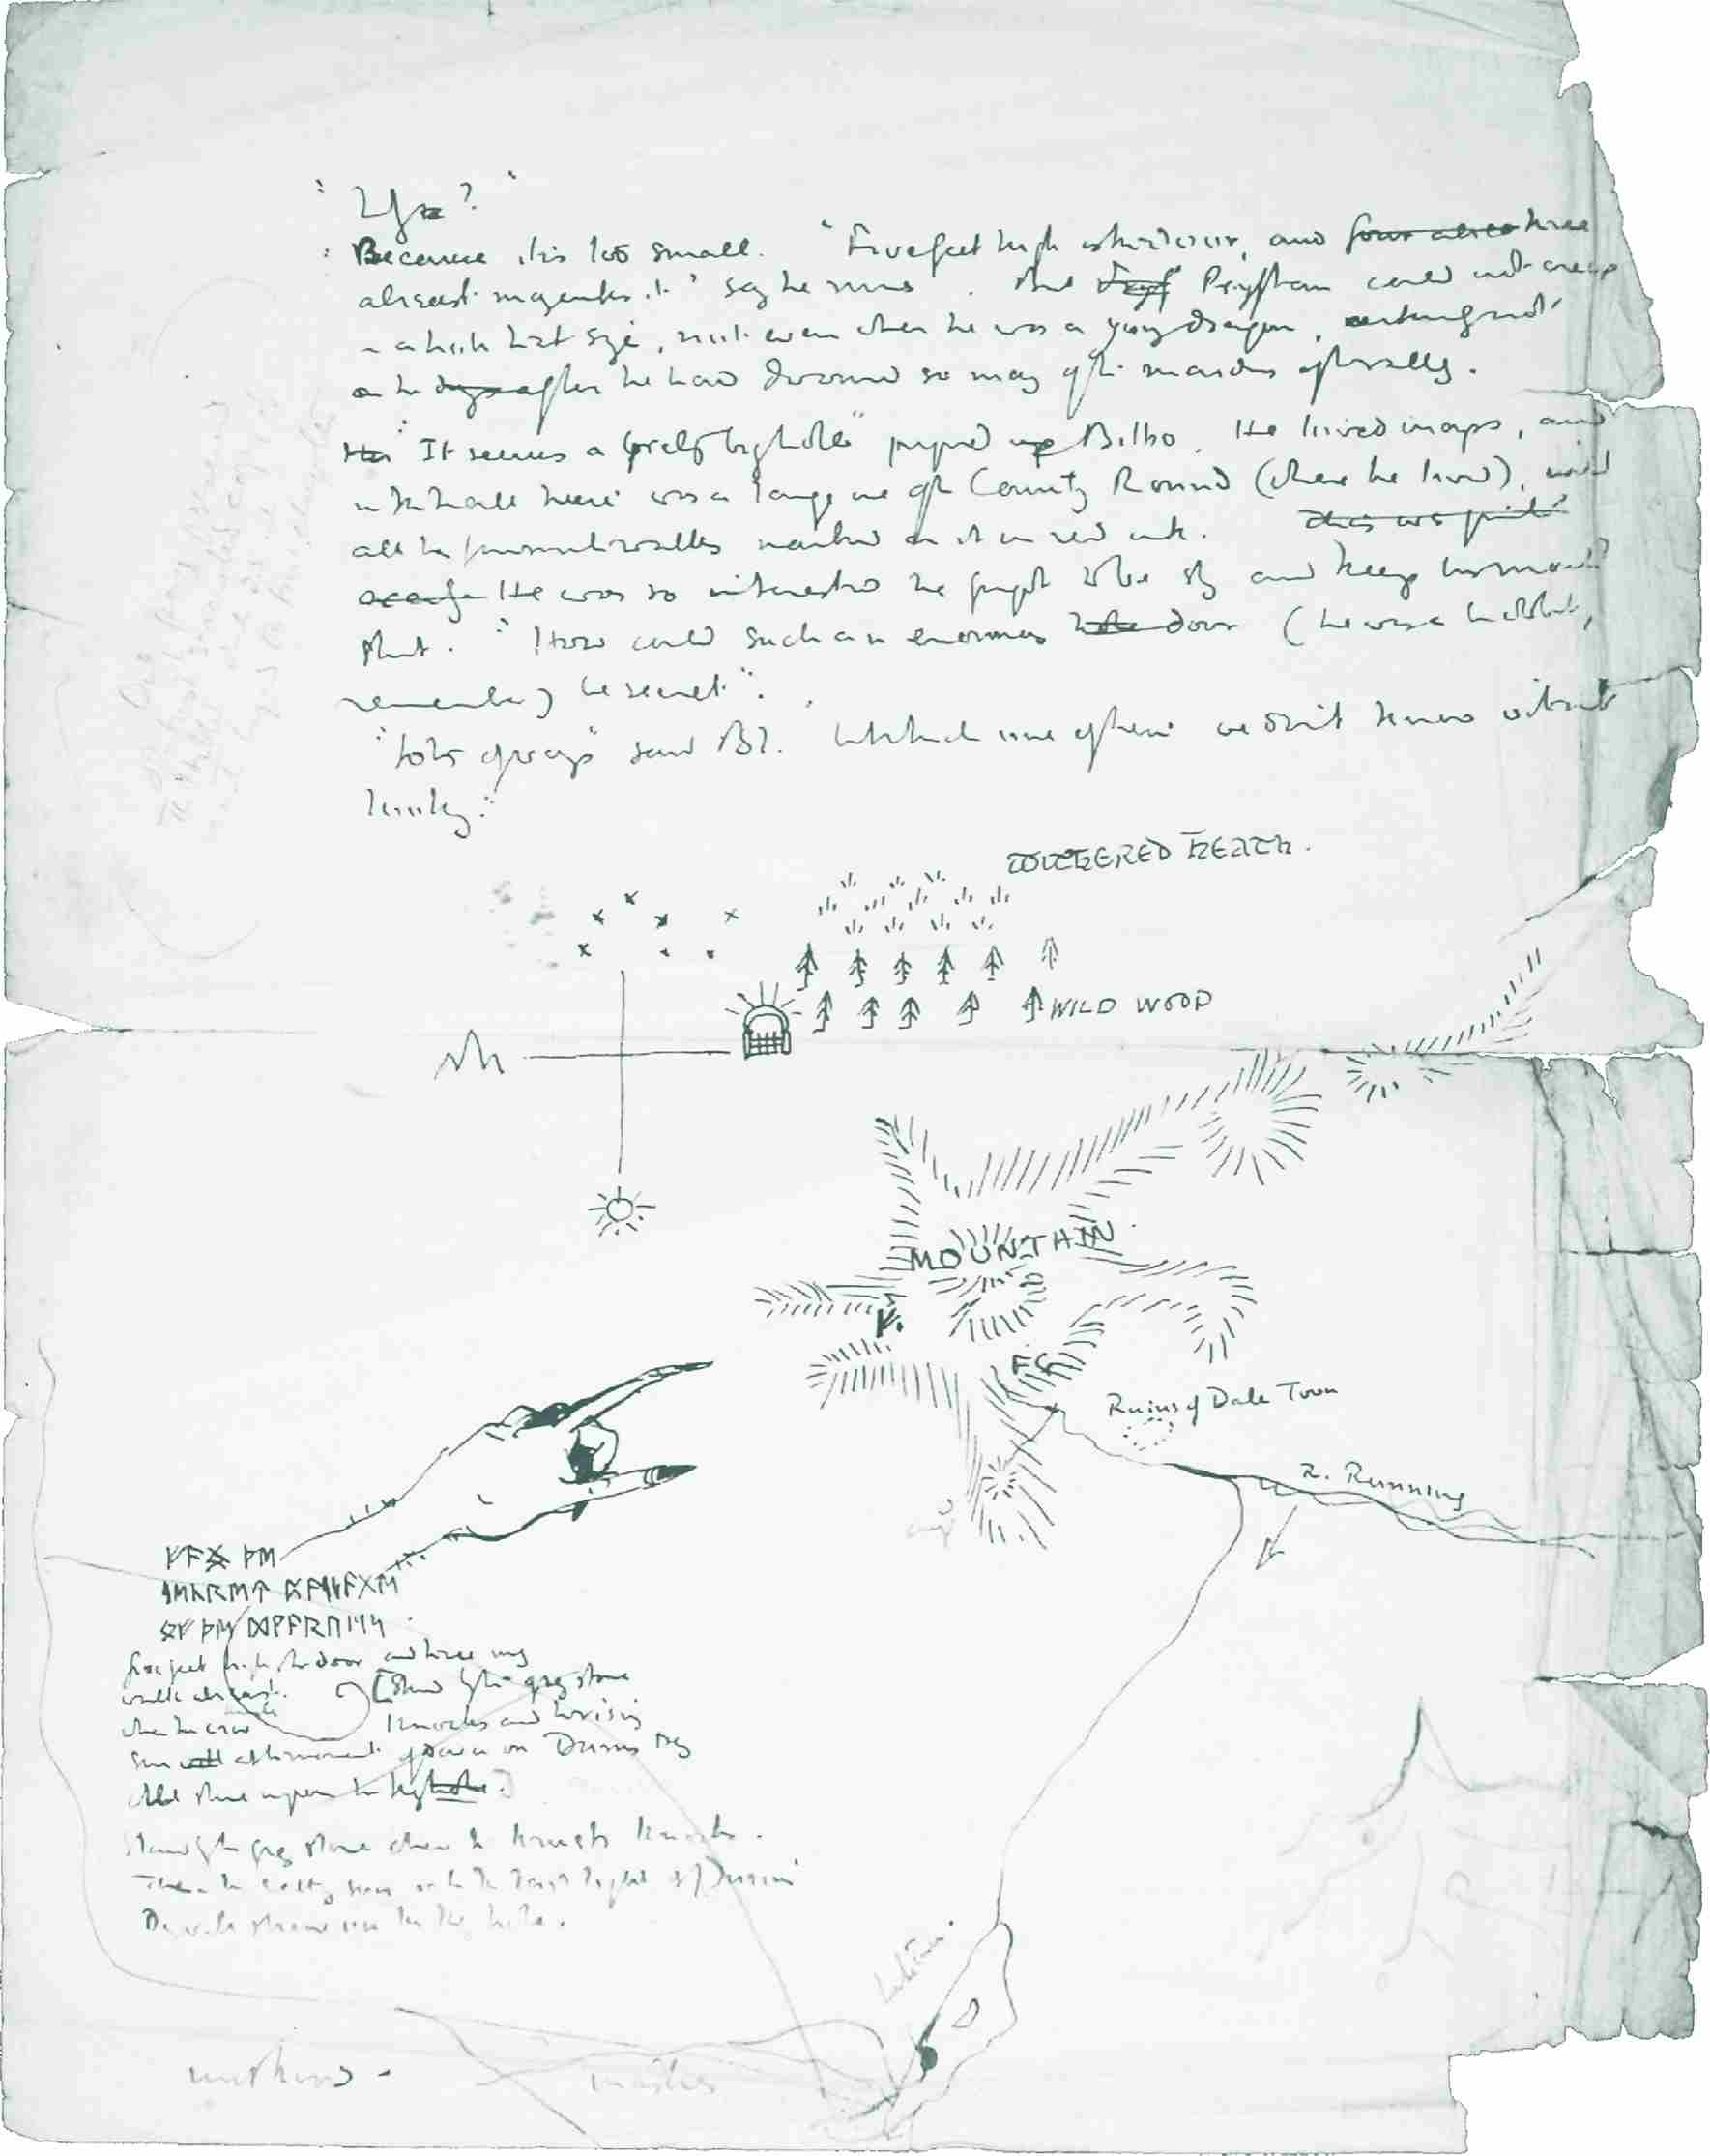 "Why?"
"Because it is too small. "Five feet high is the door, and four abreast three
abreast may enter it" say the runes. But Pryftan could not creep
in a hole that size, not even when he was a young dragon, certainly not
after he had devoured so many of the maidens of the valley.
"It seems a great big hole" piped up Bilbo. He loved maps, and
in the hall there was a large one of the County Round (where he lived), with
all his favourite walks marked on it in red ink. This was quite
He was so interested he forgot to be shy and keep his mouth
shut. "How could such an enormous hole door (he was a hobbit,
remember) be secret".
"Lots of ways" said Bl. but which one of them we don't know without
looking."
WITHERED HEATH.
WILD WOOD
MOUNTAIN
F.
FG
Ruins of Dale Town
R. Running
ᚠᚪᛝ ᚦᛖ
ᛋᛖᚳᚱᛖᛏ ᛈᚪᛋᛋᚪᚷᛖ
ᚩᚠ ᚦᛖ ᛞᚹᚪᚱᚢᛖᛋ.
five feet high is the door and three may
walk abreast. [Stand by the grey stone
when the crow knocks and the rising
sun at the moment of dawn on Durins Day
will shine upon the keyhole.]
Stand by the grey stone when the thrush knocks.
Then the setting sun with the last light of Durin's
Day will shine on the key hole.
Lake Town
mirkwood.
marshes